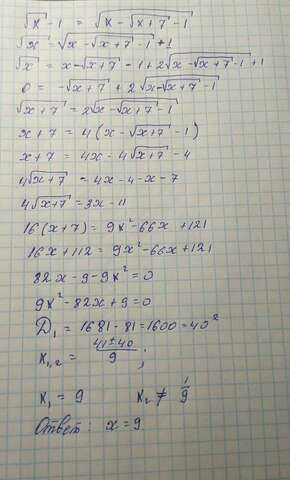 √x - 1 = √(x - √(x+7) - 1)
√x = √(x - √(x+7) - 1) + 1
√x² = x - √(x+7) - 1 + 2√(x - √(x+7) - 1) + 1
0 = -√(x+7) + 2√(x - √(x+7) - 1)
√(x+7) = 2√(x - √(x+7) - 1)
x + 7 = 4(x - √(x+7) - 1)
x + 7 = 4x - 4√(x+7) - 4
4√(x+7) = 4x - 4 - x - 7
4√(x+7) = 3x - 11
16(x+7) = 9x² - 66x + 121
16x + 112 = 9x² - 66x + 121
82x - 9 - 9x² = 0
9x² - 82x + 9 = 0
D₁ = 1681 - 81 = 1600 = 40²
x₁,₂ = (41 ± 40)/9 ;
x₁ = 9 x₂ ≠ 1/9
Ответ: x = 9